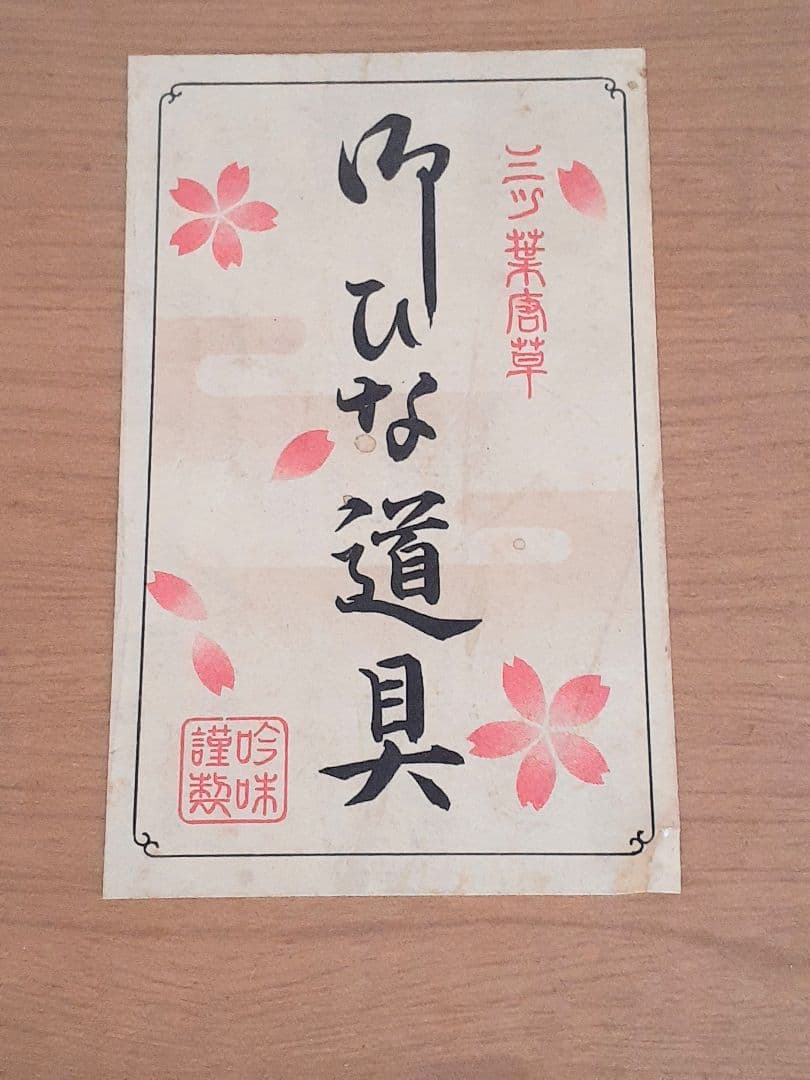 三ツ葉唐草
御ひな道具
吟味
謹製